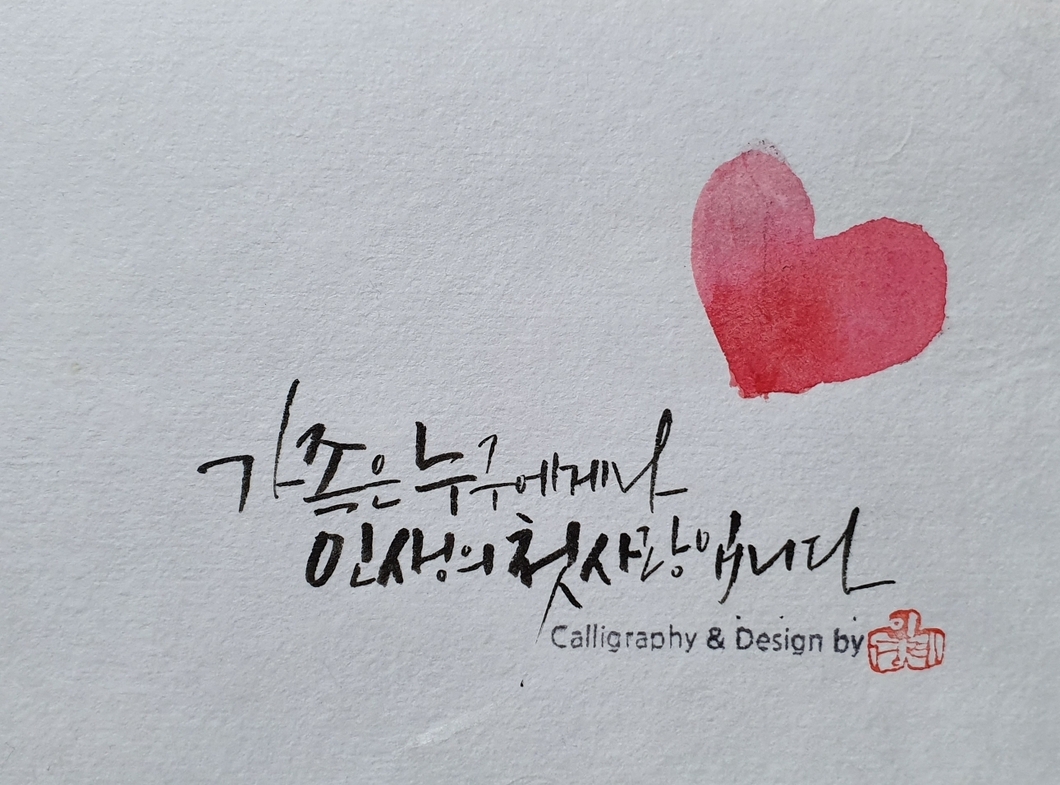 가족은 누구에게나
인생의 첫사랑입니다
Calligraphy & Design by